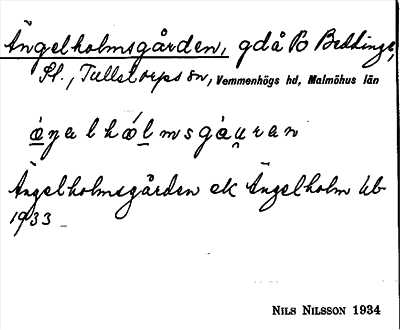 Ängelholmsgården, gdå På Beddinge,
St., Tullstorps sn, Vemmenhögs hd, Malmöhus län
ǻŋalhǻlmsgȧu̯ran
Ängelholmsgården ek Ängelholm Ub
1933
NILS NILSSON 1934